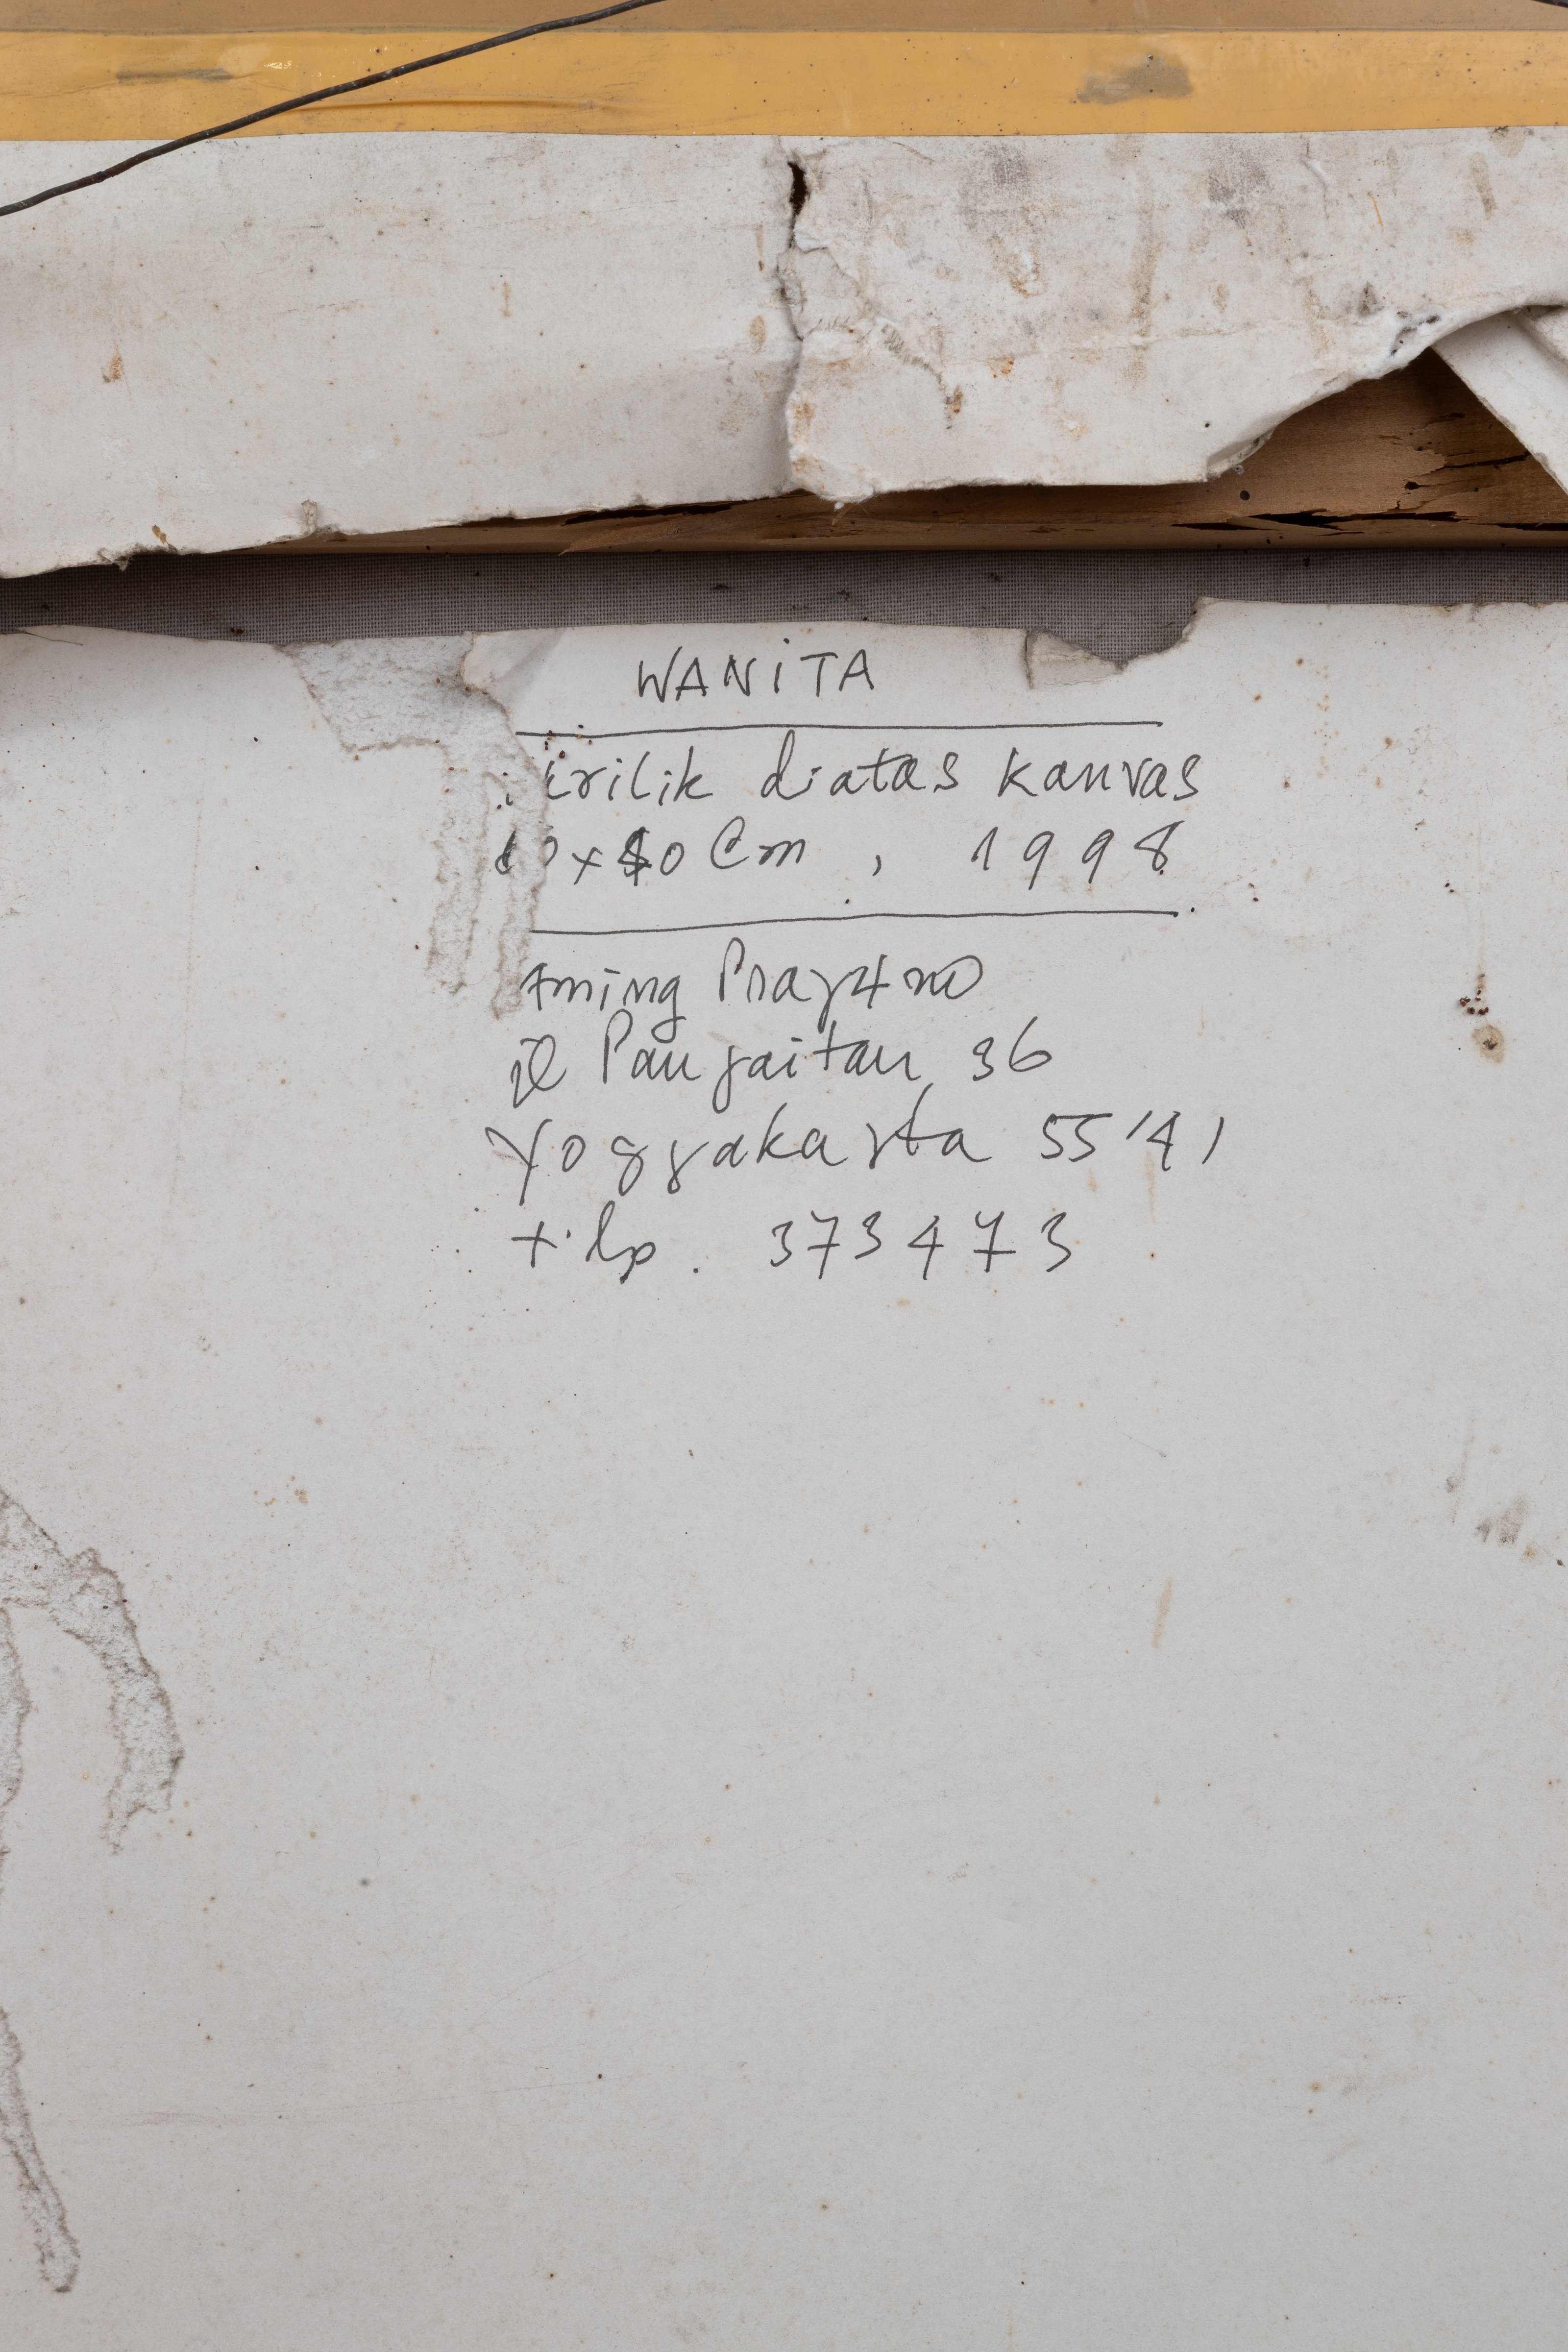 WANiTA
krilik diatas kanvas
60x80 Cm , 1998
Aming Prayitno
jl Pangaitan 36
Yogyakarta 55141
tilp. 373473